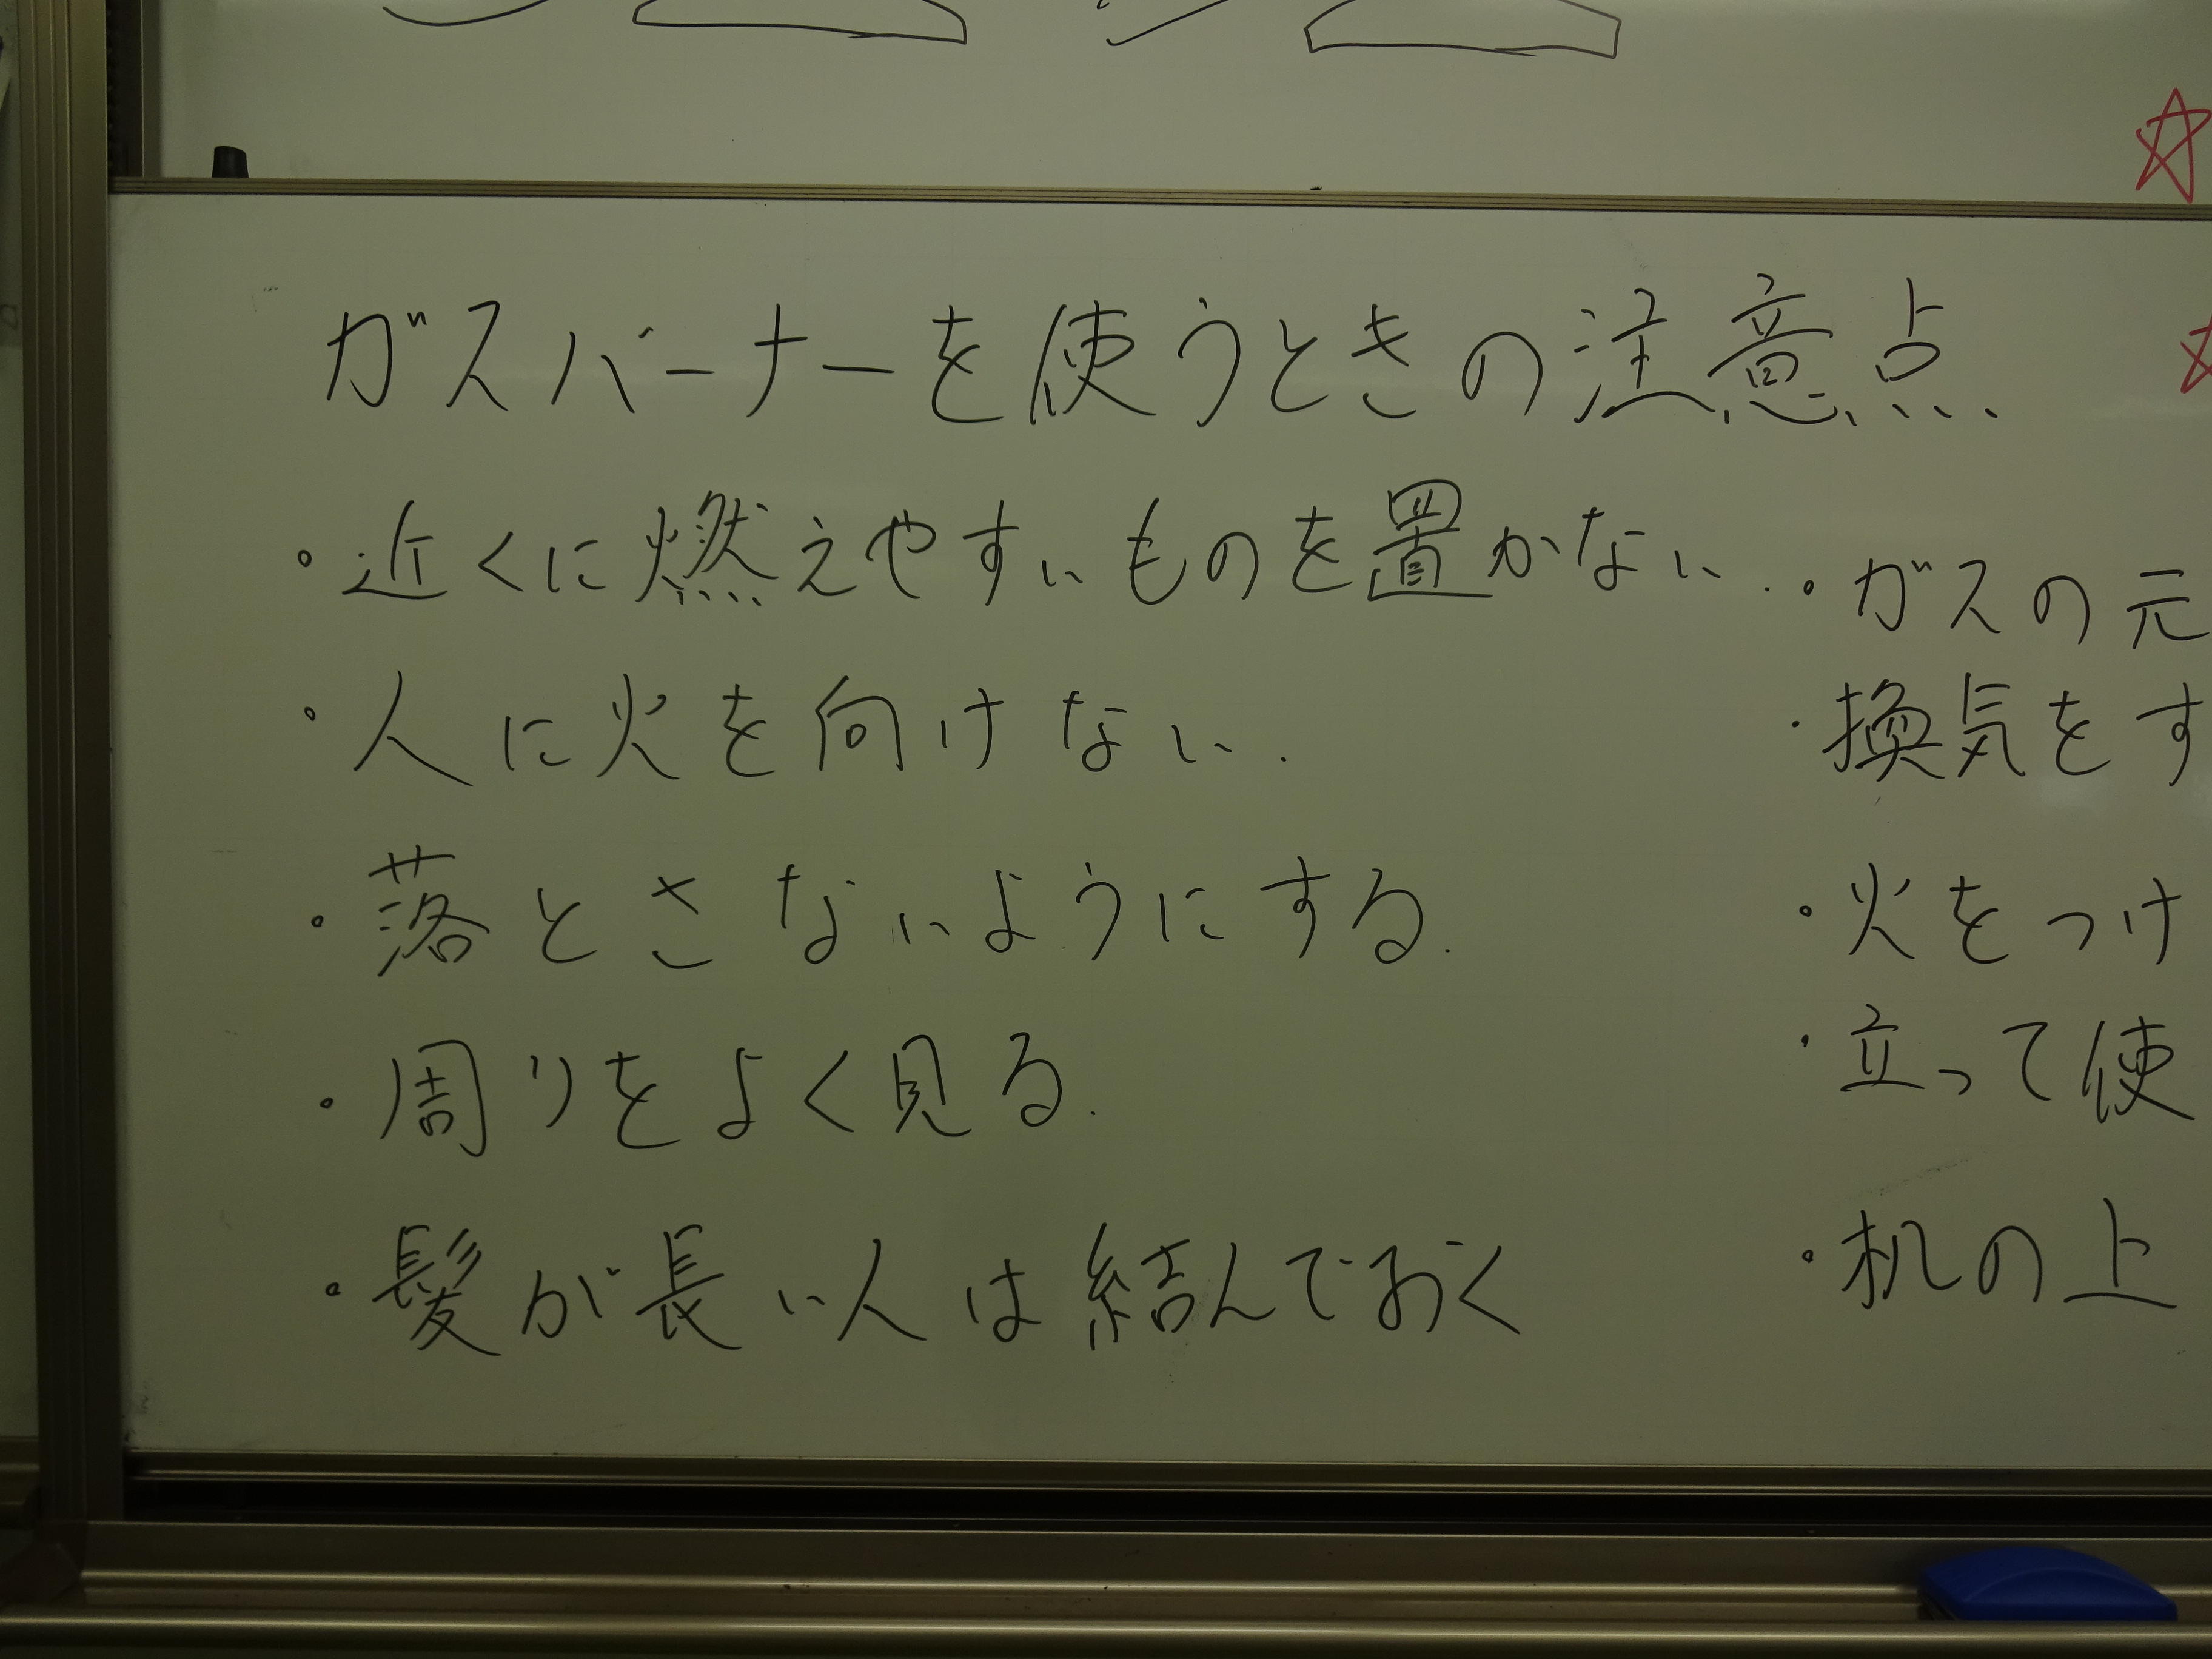 ガスバーナーを使うときの注意点
・近くに燃えやすいものを置かない.
・人に火を向けない.
・落とさないようにする.
・周りをよく見る.
・髪が長い人は結んでおく
・ガスの元
・換気をす
・火をつけ
・立って使
・机の上